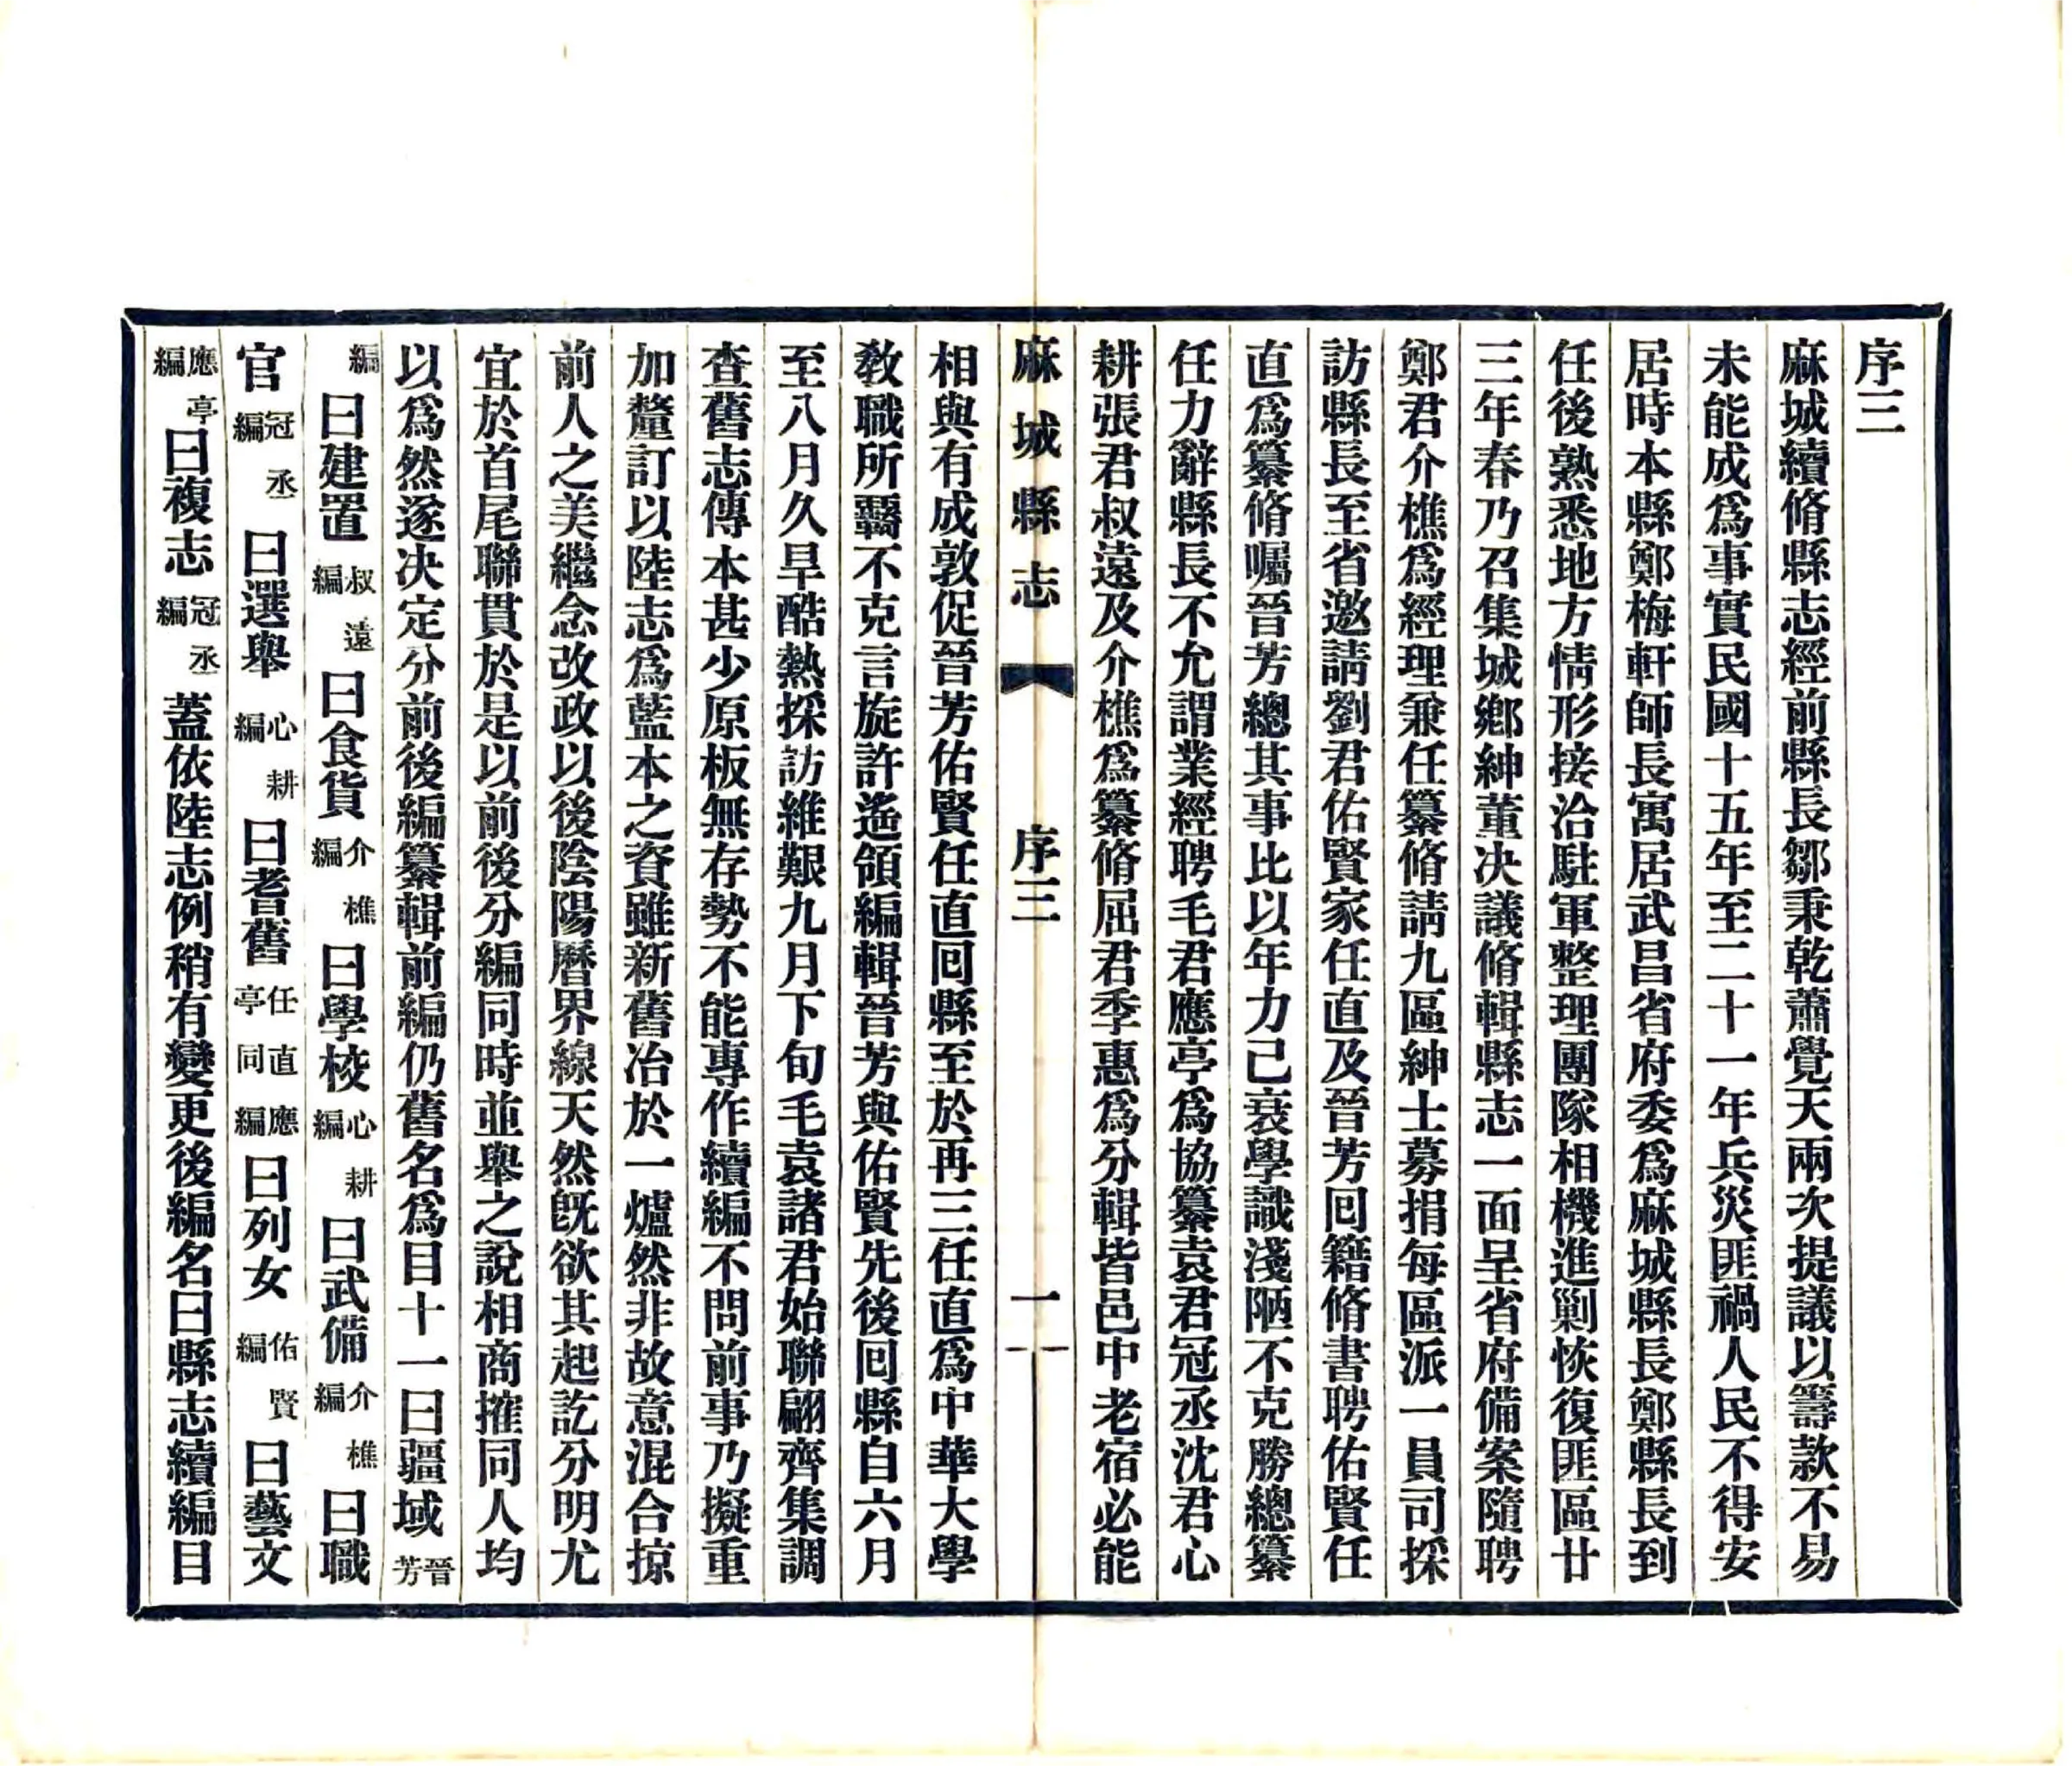 序三
麻城續脩縣志經前縣長鄒秉乾蕭覺天兩次提議以籌款不易
未能成爲事實民國十五年至二十一年兵災匪禍人民不得安
居時本縣鄭梅軒師長寓居武昌省府委爲麻城縣長鄭縣長到
任後熟悉地方情形接洽駐軍整理團隊相機進剿恢復匪區廿
三年春乃召集城鄉紳董决議脩輯縣志一面呈省府備案隨聘
鄭君介樵爲經理兼任纂脩請九區紳士募捐每區派一員司採
訪縣長至省邀請劉君佑賢家任直及晉芳回籍脩書聘佑賢任
直爲纂脩囑晉芳總其事比以年力已衰學識淺陋不克勝總纂
任力辭縣長不允謂業經聘毛君應亭爲協纂袁君冠丞沈君心
耕張君叔遠及介樵爲纂脩屈君季惠爲分輯皆邑中老宿必能
麻城縣志 序三 一
相與有成敦促晉芳佑賢任直回縣至於再三任直爲中華大學
教職所羈不克言旋許遙領編輯晉芳與佑賢先後回縣自六月
至八月久旱酷熱採訪維艱九月下旬毛袁諸君始聯翩齊集調
查舊志傳本甚少原板無存勢不能專作續編不問前事乃擬重
加釐訂以陸志爲藍本之資雖新舊冶於一爐然非故意混合掠
前人之美繼念改政以後陰陽曆界線天然旣欲其起訖分明尤
宜於首尾聯貫於是以前後分編同時並舉之說相商搉同人均
以爲然遂决定分前後編纂輯前編仍舊名爲目十一曰疆域晉芳
編曰建置叔遠編曰食貨介樵編曰學校心耕編曰武備介樵編曰職
官冠丞編曰選舉心耕編曰耆舊任直應亭同編曰列女佑賢編曰藝文
應亭編曰複志冠丞編蓋依陸志例稍有變更後編名曰縣志續編目